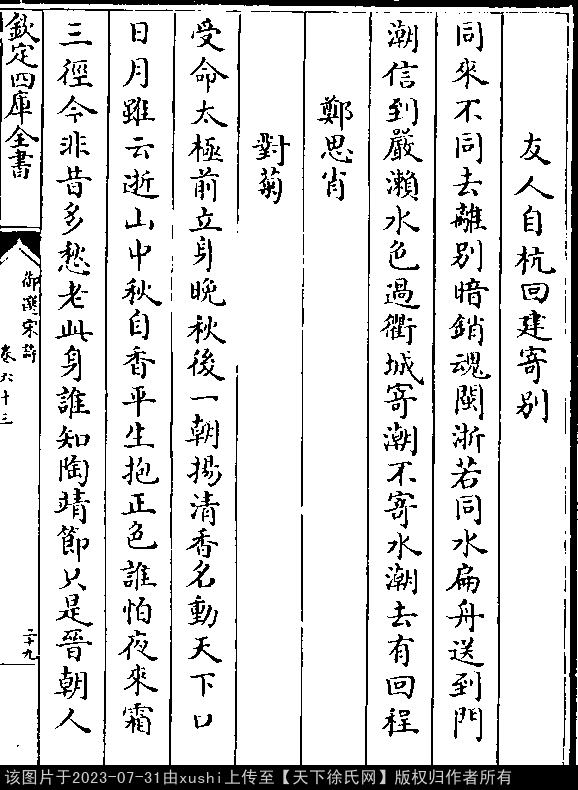 友人自杭回建寄别
同來不同去離别暗銷魂閩浙若同水扁舟送到門
潮信到嚴瀨水色過衢城寄潮不寄水潮去有回程
鄭思肖
對菊
受命太極前立身晚秋後一朝揚清香名動天下口
日月雖云逝山中秋自香平生抱正色誰怕夜來霜
三徑今非昔多愁老此身誰知陶靖節只是晉朝人
欽定四庫全書
御選宋詩
卷六十三
二十九
该图片于2023-07-31由xushi上传至【天下徐氏网】版权归作者所有